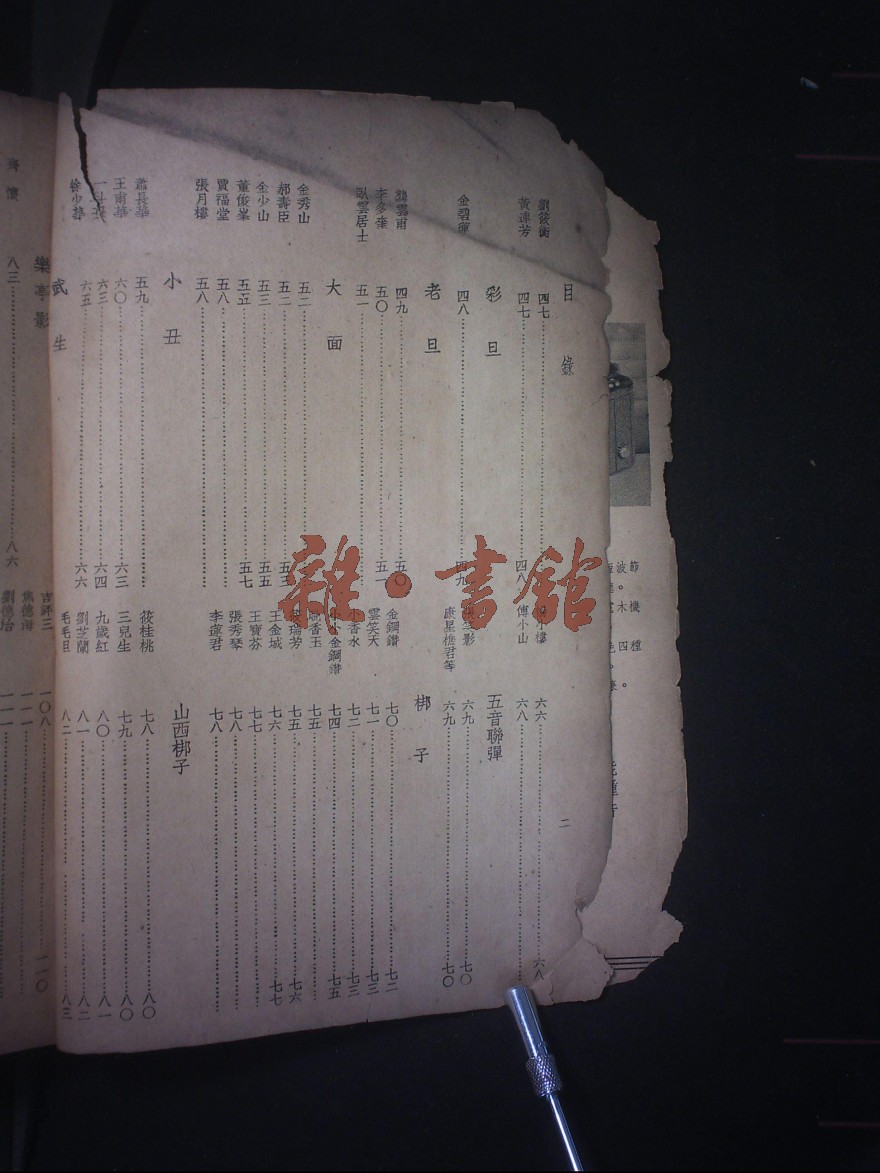 目錄
劉筱衡 四七 四八
黃連芳 四七 四八
彩旦
金碧 四八 四九
老旦
龔雲甫 四九 五〇
李多奎 五〇 五一
臥雲居士 五一
大面
金秀山 五二
郝壽臣 五二 五三
金少山 五三 五五
董俊峯 五五 五七
賈福堂 五八
張月樓 五八
小丑
蕭長華 五九
王甫華 六〇 六三
六三 六四
徐少華 六五 六六
武生
小樓 六六 六八
傅小山 六八
五音聯彈
影 六九 七〇
康星樵君等 六九 七〇
梆子
金鋼鑽 七〇 七二
雲笑天 七一 七三
小香水 七二 七三
小小金鋼鑽 七四 七五
香玉 七五
瑞芳 七五 七六
王金城 七六 七七
王寶芬 七七
張秀琴 七八
李蓮君 七八
山西梆子
筱桂桃 七八 八〇
三兒生 七九 八〇
九歲紅 八〇 八一
劉芝蘭 八一 八二
毛毛旦 八二 八三
二
樂亭影
八三 八六
吉評三 一〇八 一一〇
焦德海 一一一
劉德治 一一一
雜·書館
節
機